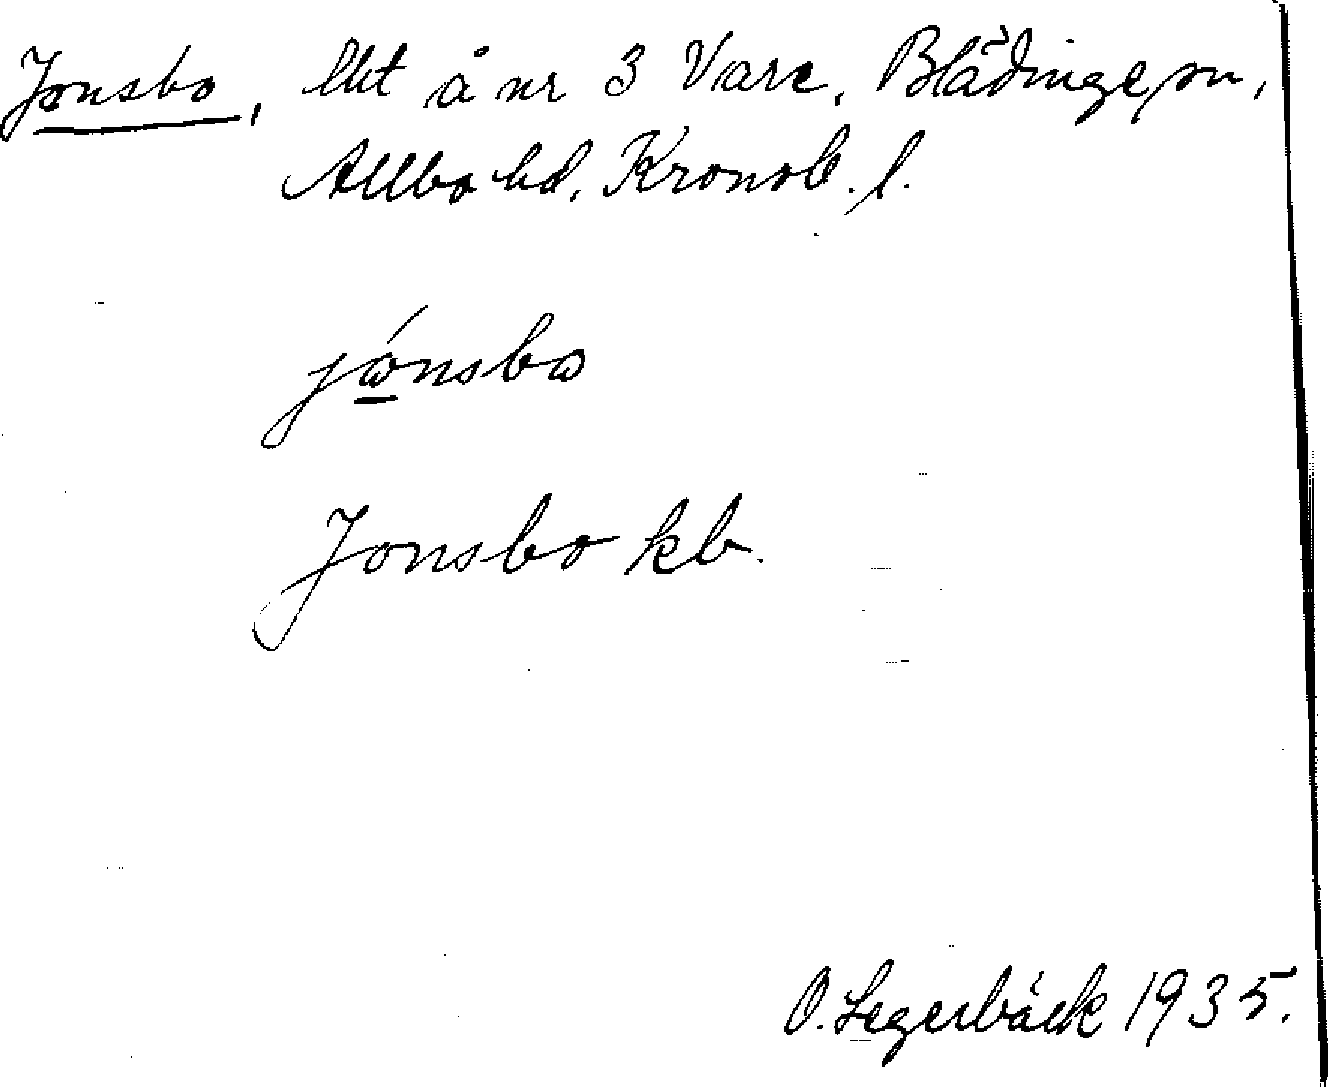 Jonsbo, lht å nr 3 Vare, Blädinge sn,
Allbo hd, Kronob. l.
jónsbo
Jonsbo kb.
O. Segerbäck 1935.